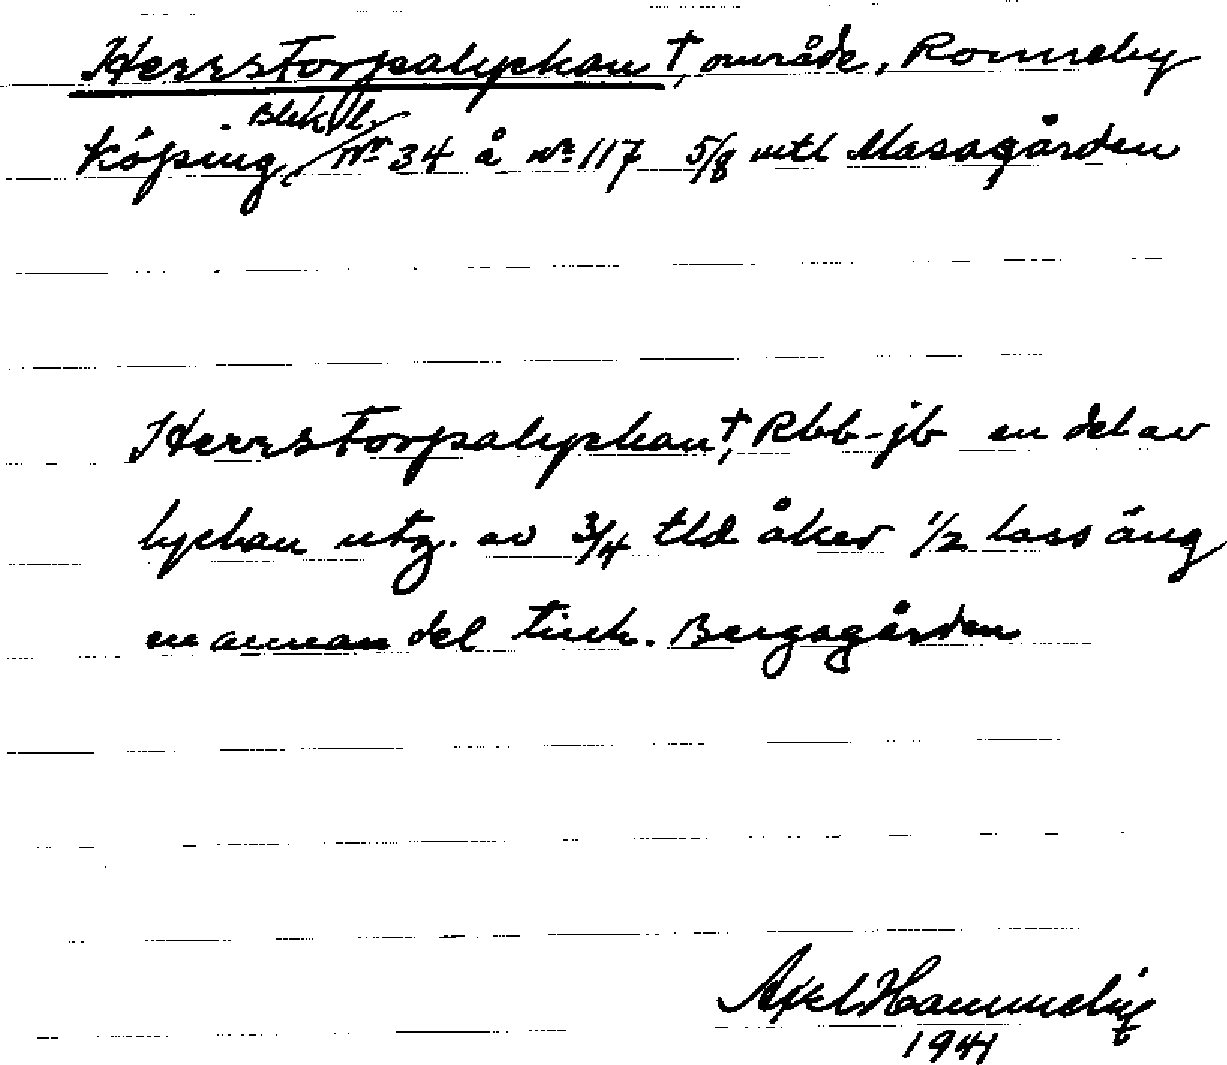 Herrstorpalyckan †, område, Ronneby
Blek. l.
köping, Nr 34 å nr 117 5/8 mtl Masagården
Herrstorpalyckan †, Rbb-jb en del av
lyckan utg. av 3/4 tld åker 1/2 lass äng
en annan del tillh. Bergagården
Axel Hammelin
1941